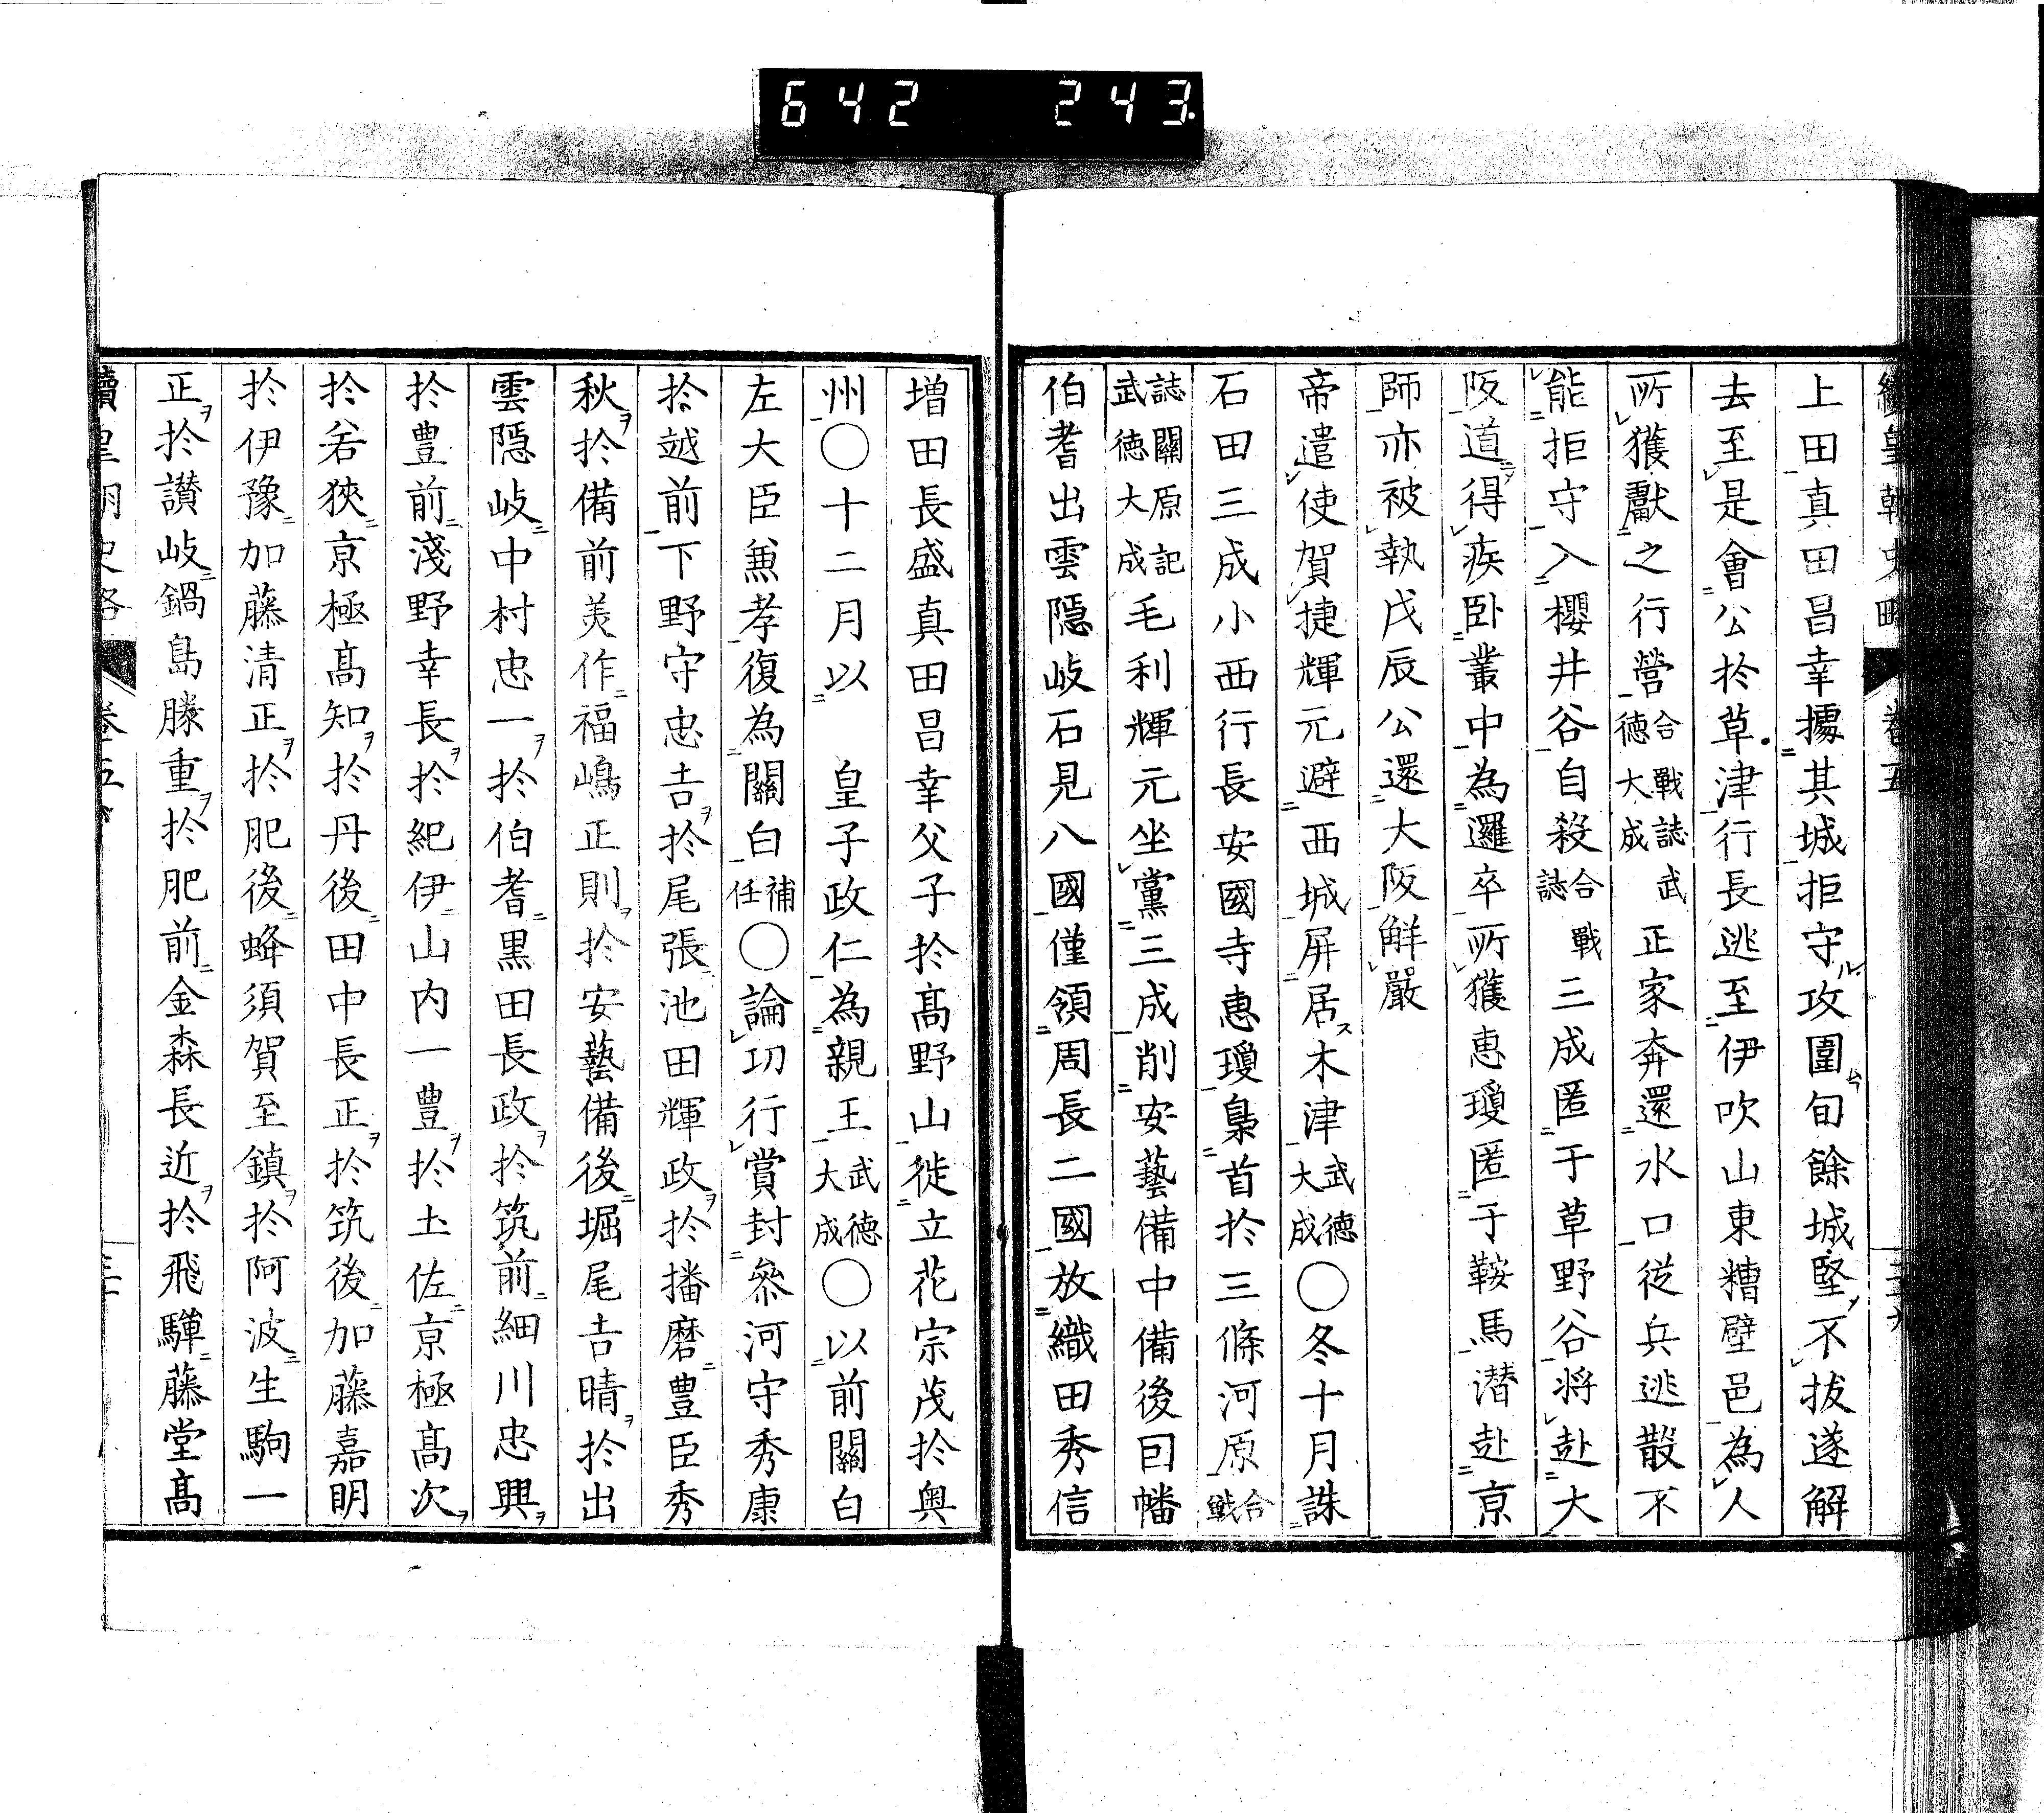 642 243
續皇朝史略 卷五
上田真田昌幸據其城拒守攻圍旬餘城堅不拔遂解
去至是會公於草津行長逃至伊吹山東糟壁邑為人
所獲獻之行營合戰誌武德大成正家奔還水口從兵逃散不
能拒守入櫻井谷自殺合戰誌三成匿于草野谷將赴大
阪道得疾臥叢中為邏卒所獲惠瓊匿于鞍馬潜赴京
師亦被執戊辰公還大阪解嚴
帝遣使賀捷輝元避西城屏居木津武德大成〇冬十月誅
石田三成小西行長安國寺惠瓊梟首於三條河原合戰
誌關原記武德大成毛利輝元坐黨三成削安藝備中備後因幡
伯耆出雲隱岐石見八國僅領周長二國放織田秀信
増田長盛真田昌幸父子於高野山徙立花宗茂於奧
州〇十二月以 皇子政仁為親王武德大成〇以前關白
左大臣兼孝復為關白補任〇論功行賞封參河守秀康
於越前下野守忠吉於尾張池田輝政於播磨豊臣秀
秋於備前美作福嶋正則於安藝備後堀尾吉晴於出
雲隱岐中村忠一於伯耆黒田長政於筑前細川忠興
於豊前淺野幸長於紀伊山内一豊於土佐京極高次
於若狹京極高知於丹後田中長正於筑後加藤嘉明
於伊豫加藤清正於肥後蜂須賀至鎮於阿波生駒一
正於讃岐鍋島勝重於肥前金森長近於飛驒藤堂高
續皇朝史略 卷五